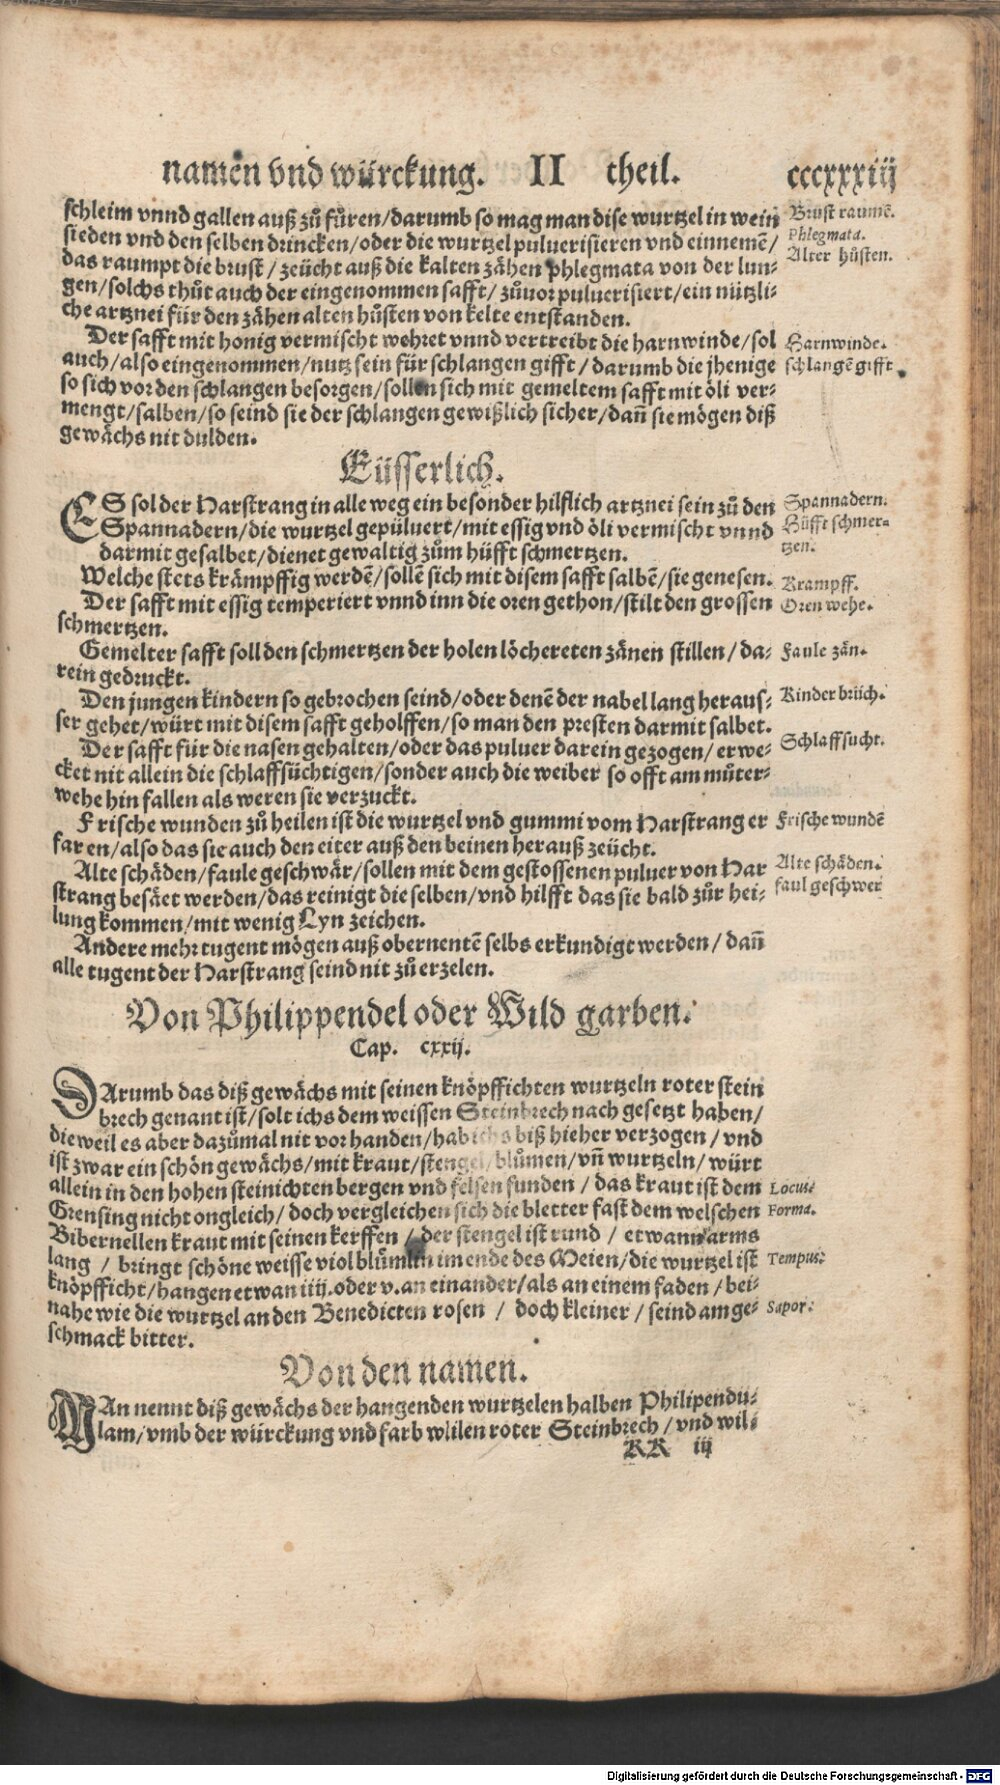 namen vnd würckung. II theil. cccxxxiij
schleim vnnd gallen auß zů fůren/darumb so mag man dise wurtzel in wein
sieden vnd den selben drincken/oder die wurtzel puluerisieren vnd einnemē/
das raumpt die brust/zeücht auß die kalten zähen phlegmata von der lun-
gen/solchs thůt auch der eingenommen safft/zůuor puluerisiert/ein nützli-
che artznei für den zähen alten hůsten von kelte entstanden.
Brust raumē.
Phlegmata.
Alter hůsten.
Der safft mit honig vermischt wehret vnnd vertreibt die harnwinde/sol
auch/also eingenommen/nutz sein für schlangen gifft/darumb die jhenige
so sich vor den schlangen besorgen/sollen sich mit gemeltem safft mit öli ver-
mengt/salben/so seind sie der schlangen gewißlich sicher/dañ sie mögen diß
gewächs nit dulden.
Harnwinde.
schlangē gifft.
Eüsserlich.
ES sol der Harstrang in alle weg ein besonder hilflich artznei sein zů den
Spannadern/die wurtzel gepüluert/mit essig vnd öli vermischt vnnd
darmit gesalbet/dienet gewaltig zům hüfft schmertzen.
Spannadern.
Hüfft schmer-
tzen.
Welche stets krämpffig werdē/sollē sich mit disem safft salbē/sie genesen.
Krampff.
Der safft mit essig temperiert vnnd inn die oren gethon/stilt den grossen
schmertzen.
Oren wehe.
Gemelter safft soll den schmertzen der holen löchereten zänen stillen/da-
rein gedruckt.
Faule zän.
Den jungen kindern so gebrochen seind/oder denē der nabel lang heraus-
ser gehet/würt mit disem safft geholffen/so man den presten darmit salbet.
Kinder brüch.
Der safft für die nasen gehalten/oder das puluer darein gezogen/erwe-
cket nit allein die schlaffsüchtigen/sonder auch die weiber so offt am můter-
wehe hin fallen als weren sie verzuckt.
Schlaffsucht.
Frische wunden zů heilen ist die wurtzel vnd gummi vom Harstrang er
faren/also das sie auch den eiter auß den beinen herauß zeücht.
Frische wundē
Alte schäden/faule geschwär/sollen mit dem gestossenen puluer von Har
strang besäet werden/das reinigt die selben/vnd hilfft das sie bald zůr hei-
lung kommen/mit wenig Lyn zeichen.
Alte schäden.
faul geschwer
Andere mehr tugent mögen auß obernentē selbs erkundigt werden/dañ
alle tugent der Harstrang seind nit zů erzelen.
Von Philippendel oder Wild garben.
Cap. cxxij.
DArumb das diß gewächs mit seinen knöpffichten wurtzeln roter stein
brech genant ist/solt ichs dem weissen Steinbrech nach gesetzt haben/
dieweil es aber dazůmal nit vorhanden/hab ichs biß hieher verzogen/vnd
ist zwar ein schön gewächs/mit kraut/stengel/blůmen/vñ wurtzeln/würt
allein in den hohen steinichten bergen vnd felsen funden/das kraut ist dem
Grensing nicht ongleich/doch vergleichen sich die bletter fast dem welschen
Bibernellen kraut mit seinen kerffen/der stengel ist rund/etwann arms
lang/bringt schöne weisse viol blůmlin im ende des Meien/die wurtzel ist
knöpfficht/hangen etwan iiij. oder v. an einander/als an einem faden/bei-
nahe wie die wurtzel an den Benedicten rosen/doch kleiner/seind am ge-
schmack bitter.
Locus.
Forma.
Tempus.
Sapor.
Von den namen.
MAn nennt diß gewächs der hangenden wurtzelen halben Philipendu-
lam/vmb der würckung vnd farb willen roter Steinbrech/vnd wil-
KK iij
Digitalisierung gefördert durch die Deutsche Forschungsgemeinschaft - DFG